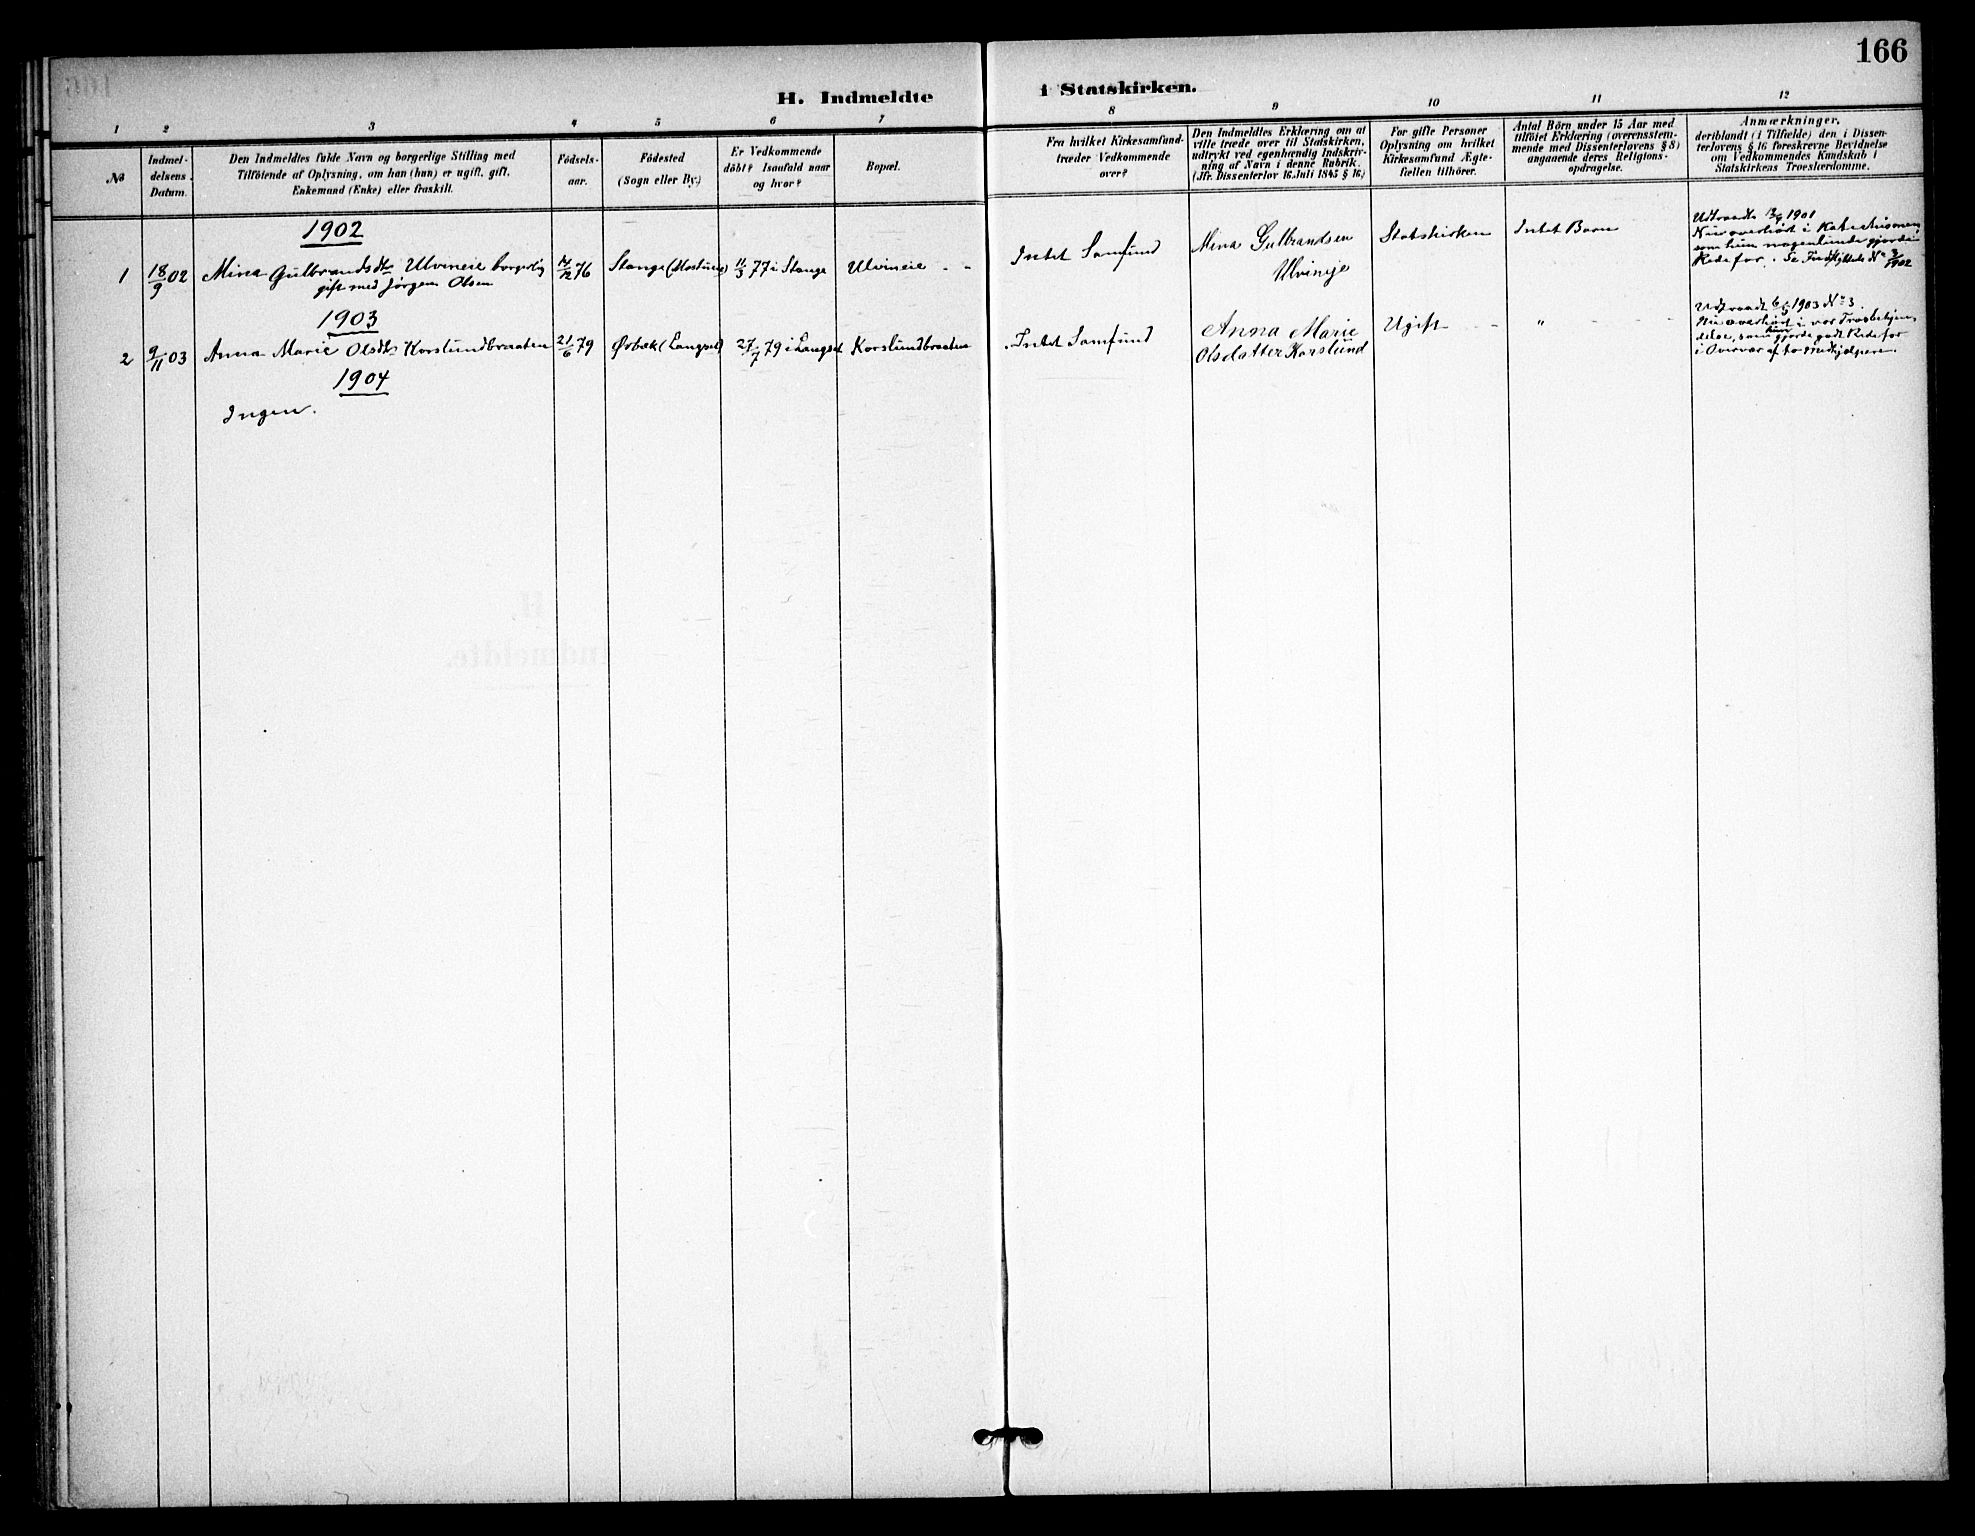 166
H. Indmeldte i Statskirken.
1 2 3 4 5 6 7 8 9 10 11 12
No
Indmel-
delsens
Datum.
Den Indmeldtes fulde Navn og borgerlige Stilling med
Tilföiende af Oplysning, om han (hun) er ugift, gift,
Enkemand (Enke) eller fraskilt.
Födsels-
aar.
Födested
(Sogn eller By.)
Er Vedkommende
döbt? Isaafald naar
og hvor?
Bopæl.
Fra hvilket Kirkesamfund
træder Vedkommende
over?
Den Indmeldtes Erklæring om at
ville træde over til Statskirken,
udtrykt ved egenhændig Indskriv-
ning af Navn i denne Rubrik.
(Jfr. Dissenterlov 16 Juli 1845 § 16.)
For gifte Personer
Oplysning om hvilket
Kirkesamfund Ægte-
fællen tilhörer.
Antal Börn under 15 Aar med
tilföiet Erklæring (overensstem-
mende med Dissenterlovens § 8)
angaaende deres Religions-
opdragelse.
Anmærkninger,
deriblandt (i Tilfælde) den i Dissen-
terlovens § 16 foreskrevne Bevidnelse
om Vedkommendes Kundskab i
Statskirkens Troeslærdomme.
1902
1 18/9 02 Mina Gulbrandsdtr Ulvineie borgerlig
gift med Jørgen Olsen
76 Stange 11/3 77 i Stange Ulvineie
Intet Samfund
Mina Gulbrandsen
Ulvineje
Statskirken
Intet Barn
Udtraadt 1901
Nu overhørt i Katechismen,
som hun nogenlunde gjorde
Rede for. Se 1902
1903
2 9/11 03 Anna Marie Olsdtr Korslundbraaten 21/6 79 Ørbæk (Langset) 27/7 79 i Langset Korslundbraaten
Intet Samfund
Anna Marie
Olsdatter Korslund
Ugift
"
Udtraadt 1903 No 3.
Nu overhørt i vor Trosbekjen-
delse, som hun gjorde godt Rede for
i Overvær af to Medhjælpere.
1904
Ingen.